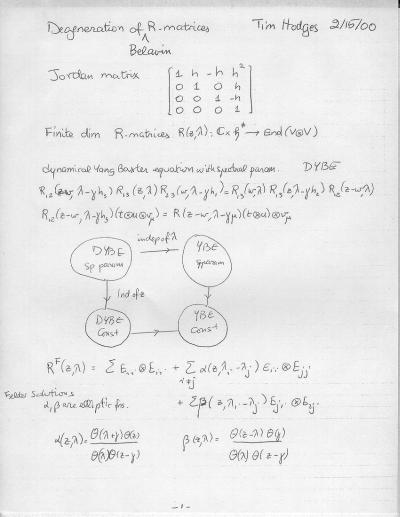 Degeneration of R-matrices Tim Hodges 2/15/00
Belavin
Jordan matrix [1 h -h h²
0 1 0 h
0 0 1 -h
0 0 0 1]
Finite dim R-matrices R(z,λ): ℂ × 𝔥* → End(V⊗V)
dynamical Yang Baxter equation with spectral param. DYBE
R₁₂(z-w, λ-γh₃) R₁₃(z,λ) R₂₃(w, λ-γh₁) = R₂₃(w,λ) R₁₃(z,λ-γh₂) R₁₂(z-w,λ)
R₁₂(z-w, λ-γh₃)(t⊗u⊗v_μ) = R(z-w, λ-γμ)(t⊗u)⊗v_μ
indep of λ
DYBE YBE
Sp param param
Ind of z
DYBE YBE
Const Const
R^F(z,λ) = Σ E_{i,i} ⊗ E_{i,i} + Σ_{i≠j} α(z,λ_i-λ_j) E_{i,i} ⊗ E_{jj}
Felder Solutions
α, β are elliptic fns. + Σβ(z,λ_i-λ_j) E_{ji} ⊗ E_{ij}
α(z,λ) = θ(λ+γ)θ(z) / θ(λ)θ(z-γ) β(z,λ) = θ(z-λ)θ(γ) / θ(λ)θ(z-γ)
-1-